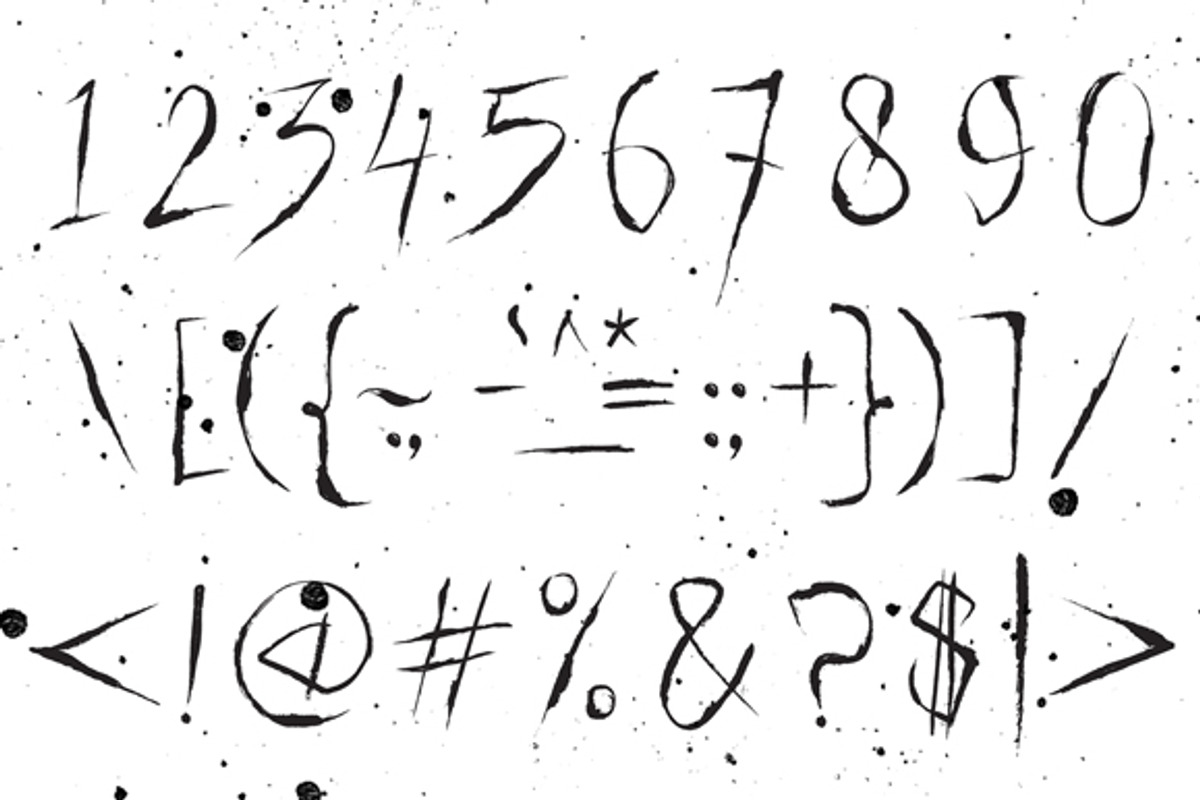 1 2 3 4 5 6 7 8 9 0
\ [ ( { ~ ; - ‘ ^ * _ = : : ; + } ) ] /
< ! @ # % & ? $ | >